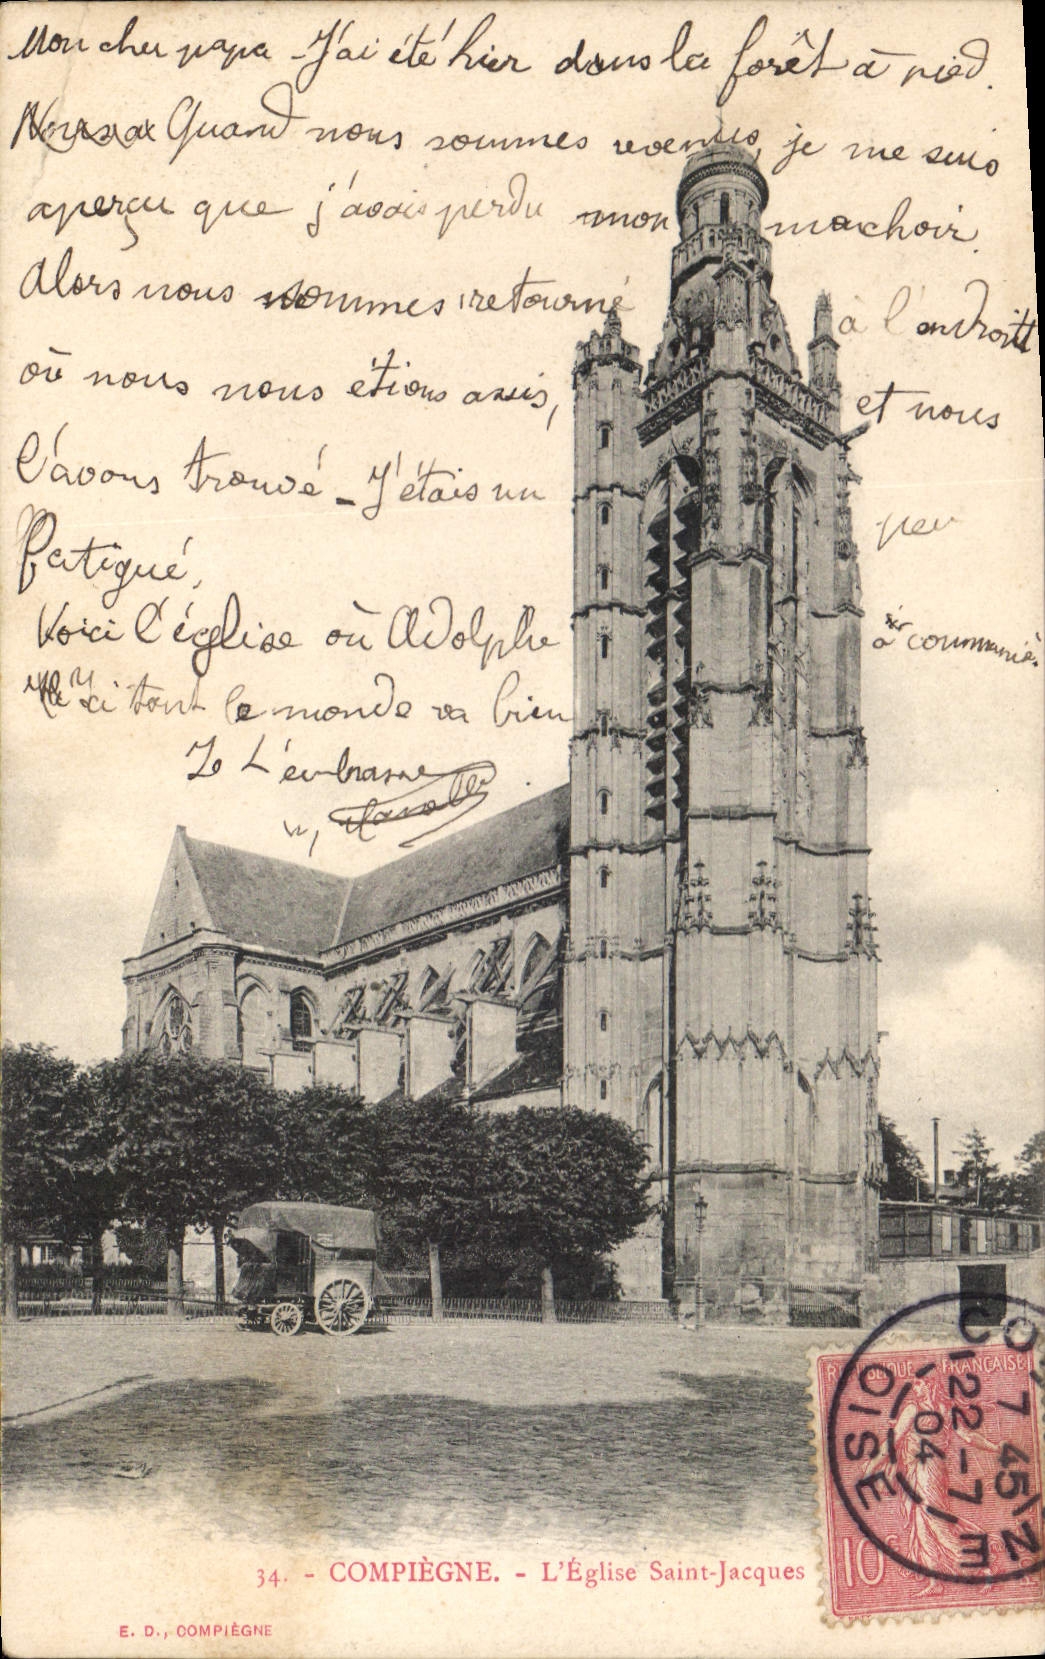 Mon cher papa - J'ai été hier dans la forêt à pied.
Quand nous sommes revenus, je me suis
aperçu que j'avais perdu mon machoir.
Alors nous sommes retourné à l'androitt
où nous nous étions assis, et nous
l'avons trouvé - J'étais un peu
fatigué,
Voici l'église où Adolphe a communié.
Ici tout le monde va bien
Je t'embrasse
RÉPUBLIQUE FRANÇAISE
10c
7 45
22-7
04
OISE
34. - COMPIÈGNE. - L'Église Saint-Jacques
E. D., COMPIÈGNE